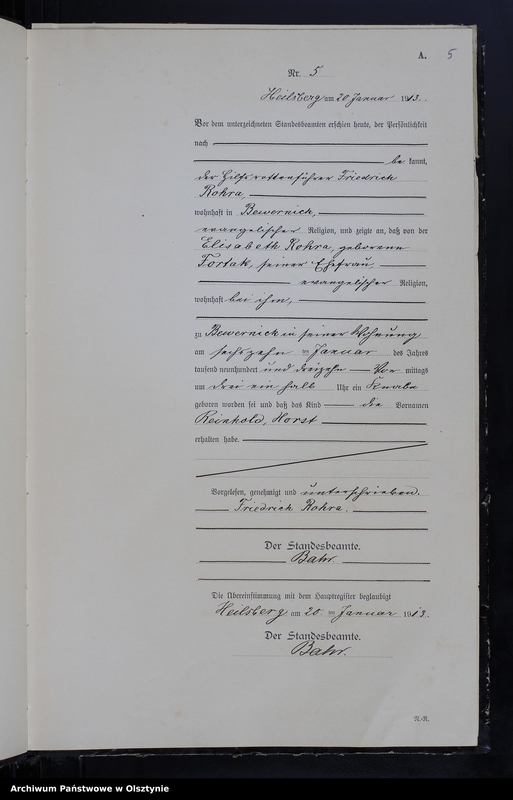 A. 5
Nr. 5
Heilsberg am 20 Januar 1913.
Vor dem unterzeichneten Standesbeamten erschien heute, der Persönlichkeit
nach
be kannt,
der Hilfsrottenführer Friedrich
Rohra,
wohnhaft in Bewernich,
evangelischer Religion, und zeigte an, daß von der
Elisabeth Rohra, geborene
Fortak, seiner Ehefrau,
evangelischer Religion,
wohnhaft bei ihm,
zu Bewernich in seiner Wohnung
am sechszehn ten Januar des Jahres
tausend neunhundert und dreizehn Vor mittags
um drei ein halb Uhr ein Knabe
geboren worden sei und daß das Kind die Vornamen
Reinhold, Horst
erhalten habe.
Vorgelesen, genehmigt und unterschrieben.
Friedrich Rohra.
Der Standesbeamte.
Bahr.
Die Übereinstimmung mit dem Hauptregister beglaubigt
Heilsberg am 20 ten Januar 1913.
Der Standesbeamte.
Bahr.
N.-R.
Archiwum Państwowe w Olsztynie